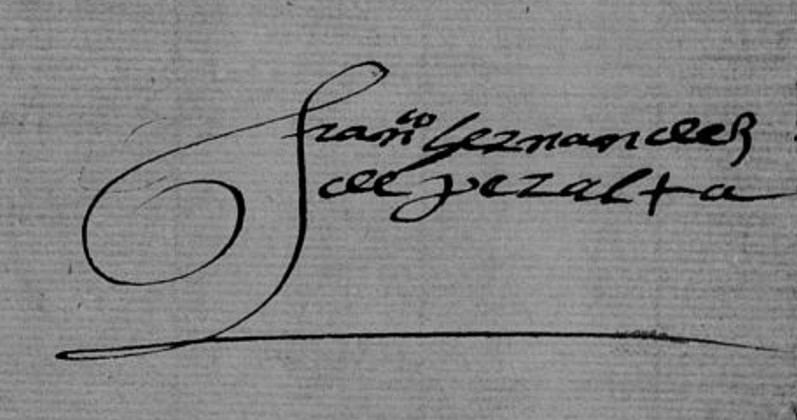 Fran^co hernandez
de peralta